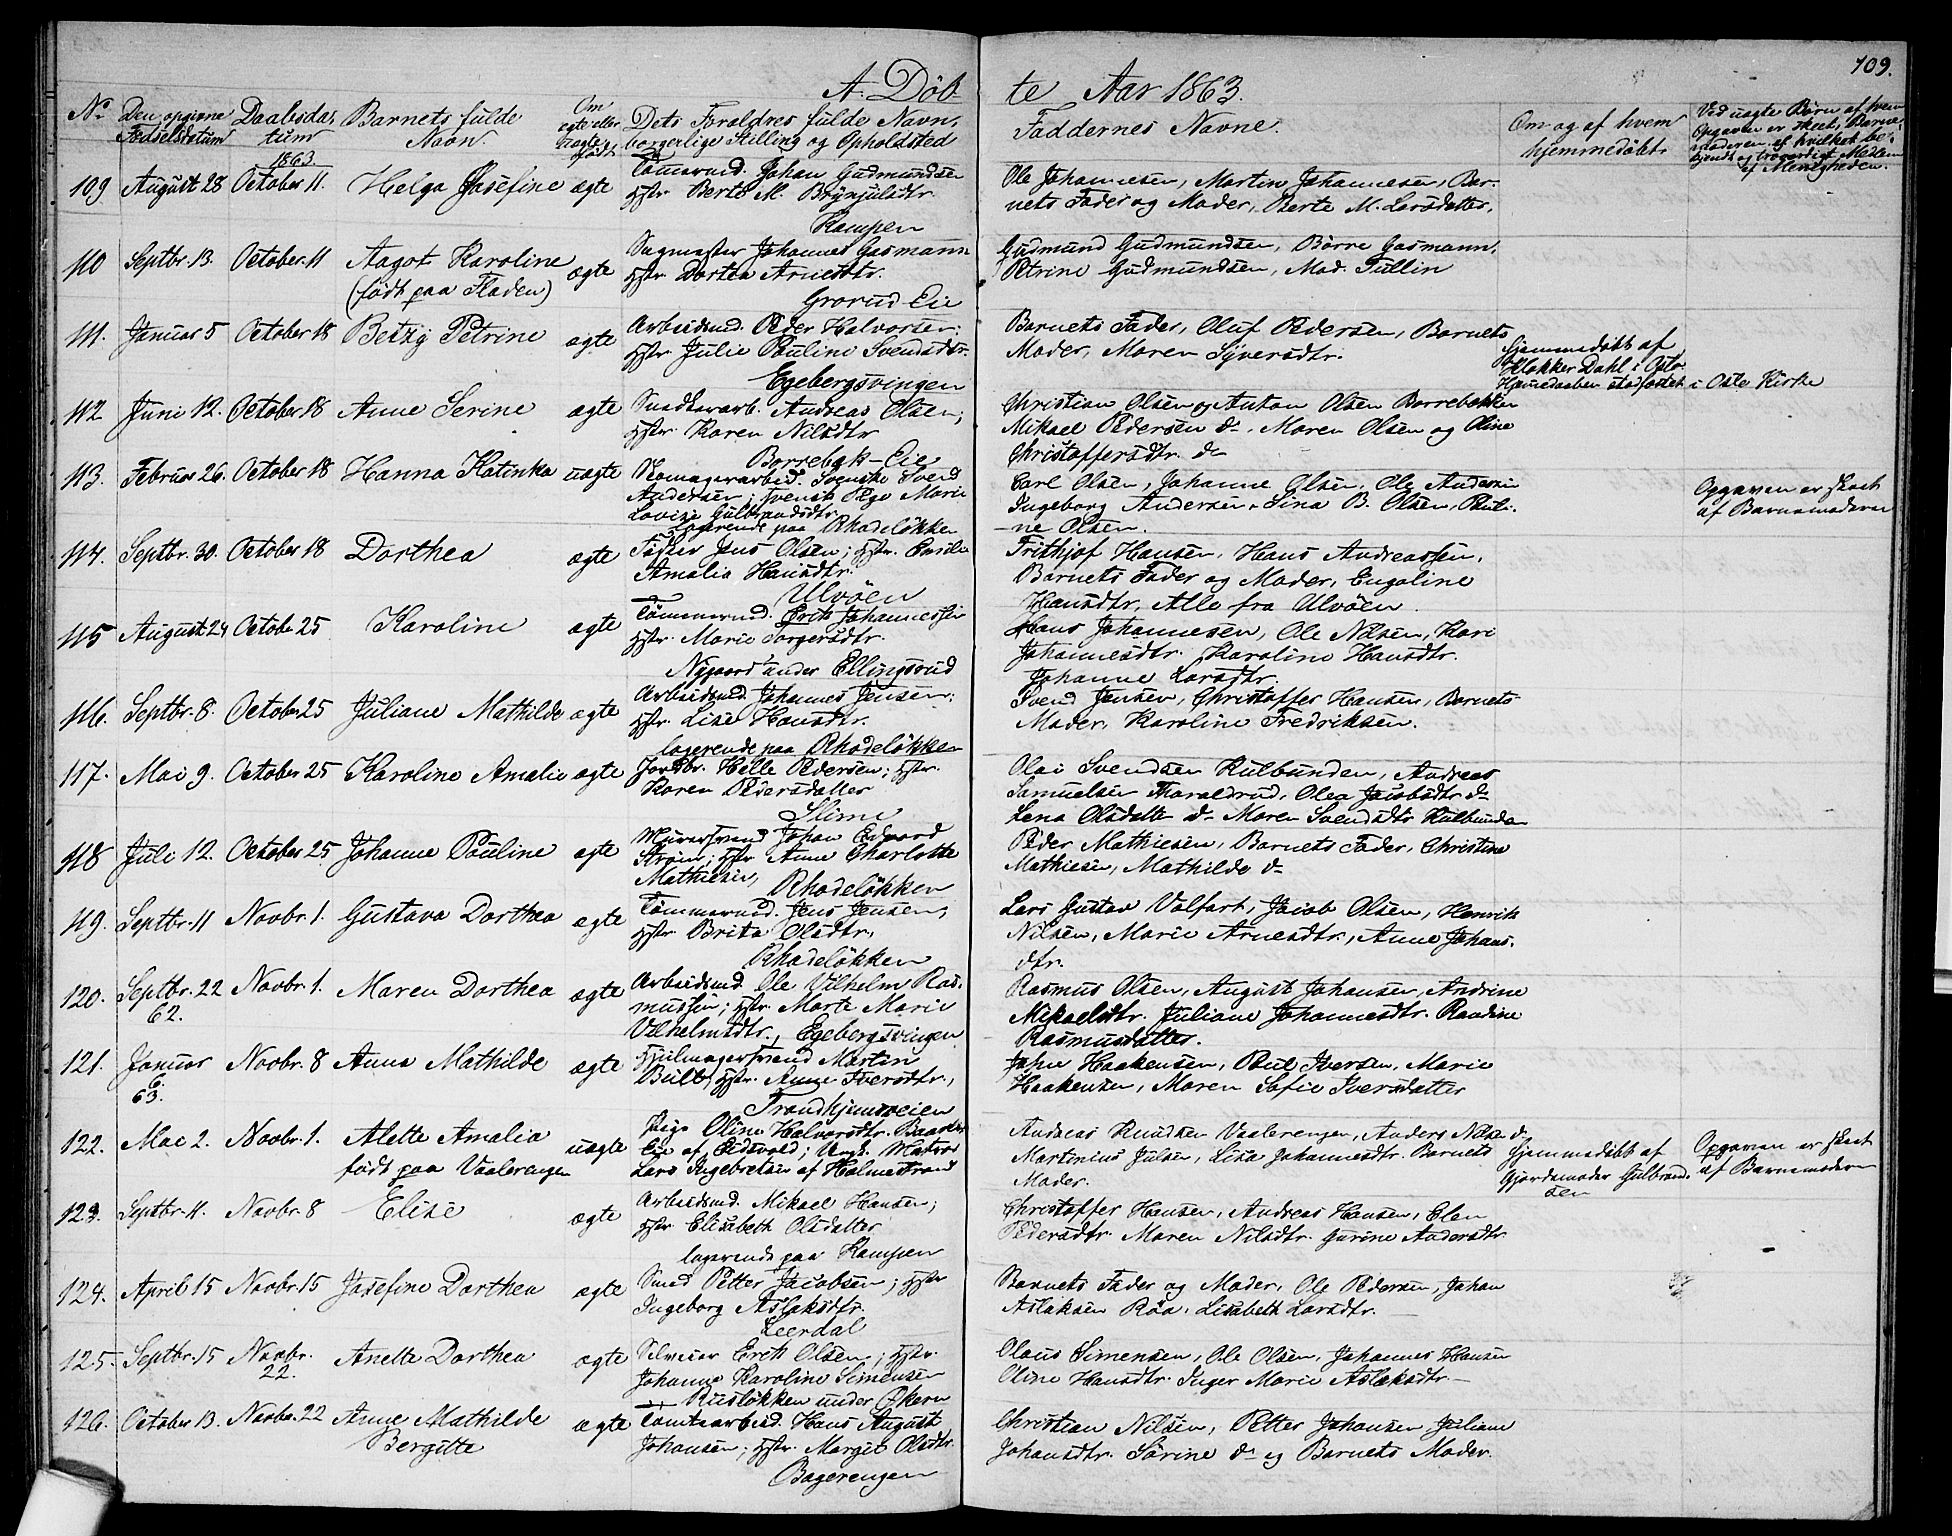 109.
A. Döb-
te Aar 1863.
No
Den opgivne Fødselsdatum
Daabsdatum
Barnets fulde Navn.
Om ægte eller uægte født
Dets Foraldres fulde Navn, borgerlige Stilling og Opholdsted
Faddernes Navne.
Om og af hvem hjemmedøbt.
Ved uægte Børn af hvem Opgaven er skeet, Barnemoderen el. hvilket bekjendt og troværdigt Medlem af Menigheden.
1863
109 August 28 October 11. Helga Josefine ægte
Tömmermd. Johan Gudmundsen
Hstr Berte M. Brynjulsdtr.
Kampen
Ole Johannesen, Martin Johannesen, Bar-
nets Fader og Moder, Berte M. Larsdatter,
110 Septbr. 13. October. 11 Aagot Karoline
(født paa Fladen)
ægte
Sagmester Johannes Gasmann
Hstr. Dortea Arnesdtr.
Grorud Eie
Gudmund Gudmundsen, Börre Gasmann,
Petrine Gudmundsen, Mad. Tullin
111. Januar 5 October 18 Betzy Petrine ægte
Arbeidsmd. Peder Halvorsen;
Hstr. Julie Pauline Svendsdtr.
Egebergsvingen
Barnets Fader, Oluf Pedersen, Barnets
Moder, Maren Syversdtr.
Hjemmedöbt af
Klokker Dahl i Oslo.
Hjemmedaaben stadfæstet i Oslo Kirke
112 Juni 12. October 18 Anne Serine ægte
Snedkerarb. Andreas Olsen;
Hstr. Karen Nilsdtr
Borrebæk-Eie
Christian Olsen og Anton Olsen Borrebækken
Mikael Pedersen do. Maren Olsen og Oline
Christoffersdtr. do
113. Februar 26. October 18 Hanna Katinka uægte
Skomagerarbeid. Svenske Svend
Andersen; svensk Pige Maria
Lovise Gulbrandsdtr.
logerende paa Rhodeløkken
Carl Olsen, Johanne Olsen, Ole Andersen
Ingeborg Andersen, Lina B. Olsen, Pauli-
ne Olsen.
Opgaven er skeet
af Barnemoderen
114. Septbr. 30. October 18 Dorthea ægte
Fisker Jens Olsen; Hstr. Emilie
Amalia Hansdtr.
Ulvöen
Frithjof Hansen, Hans Andreassen,
Barnets Fader og Moder, Engeline
Hansdtr. Alle fra Ulvöen.
115 August 24 October 25 Karoline ægte
Tömmermd. Erik Johannessen
Hstr. Marie Torgersdtr.
Nygaard under Ellingsrud
Hans Johannesen, Ole Nilsen, Kari
Johannesdtr. Karoline Hansdtr.
Johanne Larsdtr.
116. Septbr. 8. October 25 Juliane Mathilde ægte
Arbeidsmd. Johannes Jensen;
Hstr. Lise Hansdtr.
logerende paa Rhodeløkken
Svend Jensen, Christoffer Hansen, Barnets
Moder, Karoline Fredriksen.
117. Mai 9. October 25 Karoline Amalie ægte
Jordbr. Helle Pedersen; Hstr.
Karen Pedersdatter
Slime
Olai Svendsen Kulbunden, Andreas
Samuelsen Tharaldrud, Olea Jacobsdtr do
Lena Olsdatter do Maren Svendsdtr Kulbunden
118 Juli 12. October 25 Johanne Pauline ægte
Murersvend Johan Edvard
Ström; Hstr Anne Charlotte
Mathiesen,
Rhodeløkken
Peder Mathiesen, Barnets Fader, Christine
Mathiesen, Mathilde do
119. Septbr. 11 Novbr. 1. Gustava Dorthea ægte
Tömmermd. Jens Jensen,
Hstr. Brita Olsdtr,
Rhodeløkken
Lars Gustav Valfart, Jacob Olsen, Henrik
Nilsen, Marie Arnesdtr., Anne Johans-
dtr.
120. Septbr. 22
62.
Novbr. 1. Maren Dorthea ægte
Arbeidsmd. Ole Vilhelm Ras-
mussen; Hstr. Marte Marie
Vilhelmsdtr., Egebergsvingen
Rasmus Olsen, August Johansen, Andrine
Mikaelsdtr. Juliane Johannesdtr. Randine
Rasmusdatter.
121. Januar
6.
63.
Novbr. 8 Anna Mathilde ægte
Hjulmagersvend Martin
Bull; Hstr. Anne Iversdtr.,
Trondhjemsveien
John Haakensen, Paul Iversen, Marie
Haakensen, Maren Sofie Iversdatter
122. Mai 2. Novbr. 1. Alette Amalia
født paa Vaalerengen
uægte
Pige Oline Halvorsdtr. Baarder
Eie af Eidsvold; Ungk. Matros
Lars Ingebretsen af Holmestrand
Andreas Knudsen Vaalerengen, Anders Nilsen do
Martinius Julsen, Lisa Johannesdtr. Barnets
Moder.
Hjemmedöbt af
Gjordemoder Gulbrand-
sen
Opgaven er skeet
af Barnemoderen
123. Septbr. 11. Novbr. 8 Elise ægte
Arbeidsmd. Mikael Hansen;
Hstr. Elisabeth Olsdatter
logerende paa Kampen
Christoffer Hansen, Andreas Hansen, Elen
Pedersdtr. Maren Nilsdtr. Gurine Andersdtr.
124. April 15 Novbr. 15 Josefine Dorthea ægte
Smed Petter Jacobsen; Hstr
Ingeborg Aslaksdtr.
Leerdal
Barnets Fader og Moder, Ole Pedersen, Johan
Aslaksen Röa, Lisabeth Larsdtr.
125. Septbr. 15 Novbr.
22.
Anette Dorthea ægte
Selveier Erik Olsen; Hstr.
Johanne Karoline Simensen
Rislökken under Økern
Olaus Simensen, Ole Olsen, Johannes Hansen
Oline Hansdtr. Inger Marie Aslaksdtr.
126. October 13. Novbr. 22 Anne Mathilde
Bergitte
ægte
Tomtearbeid. Hans August
Johansen; Hstr. Margit Olsdtr.
Bagerengen
Christian Nilsen, Petter Johansen, Juliane
Johansdtr. Sörine do og Barnets Moder.